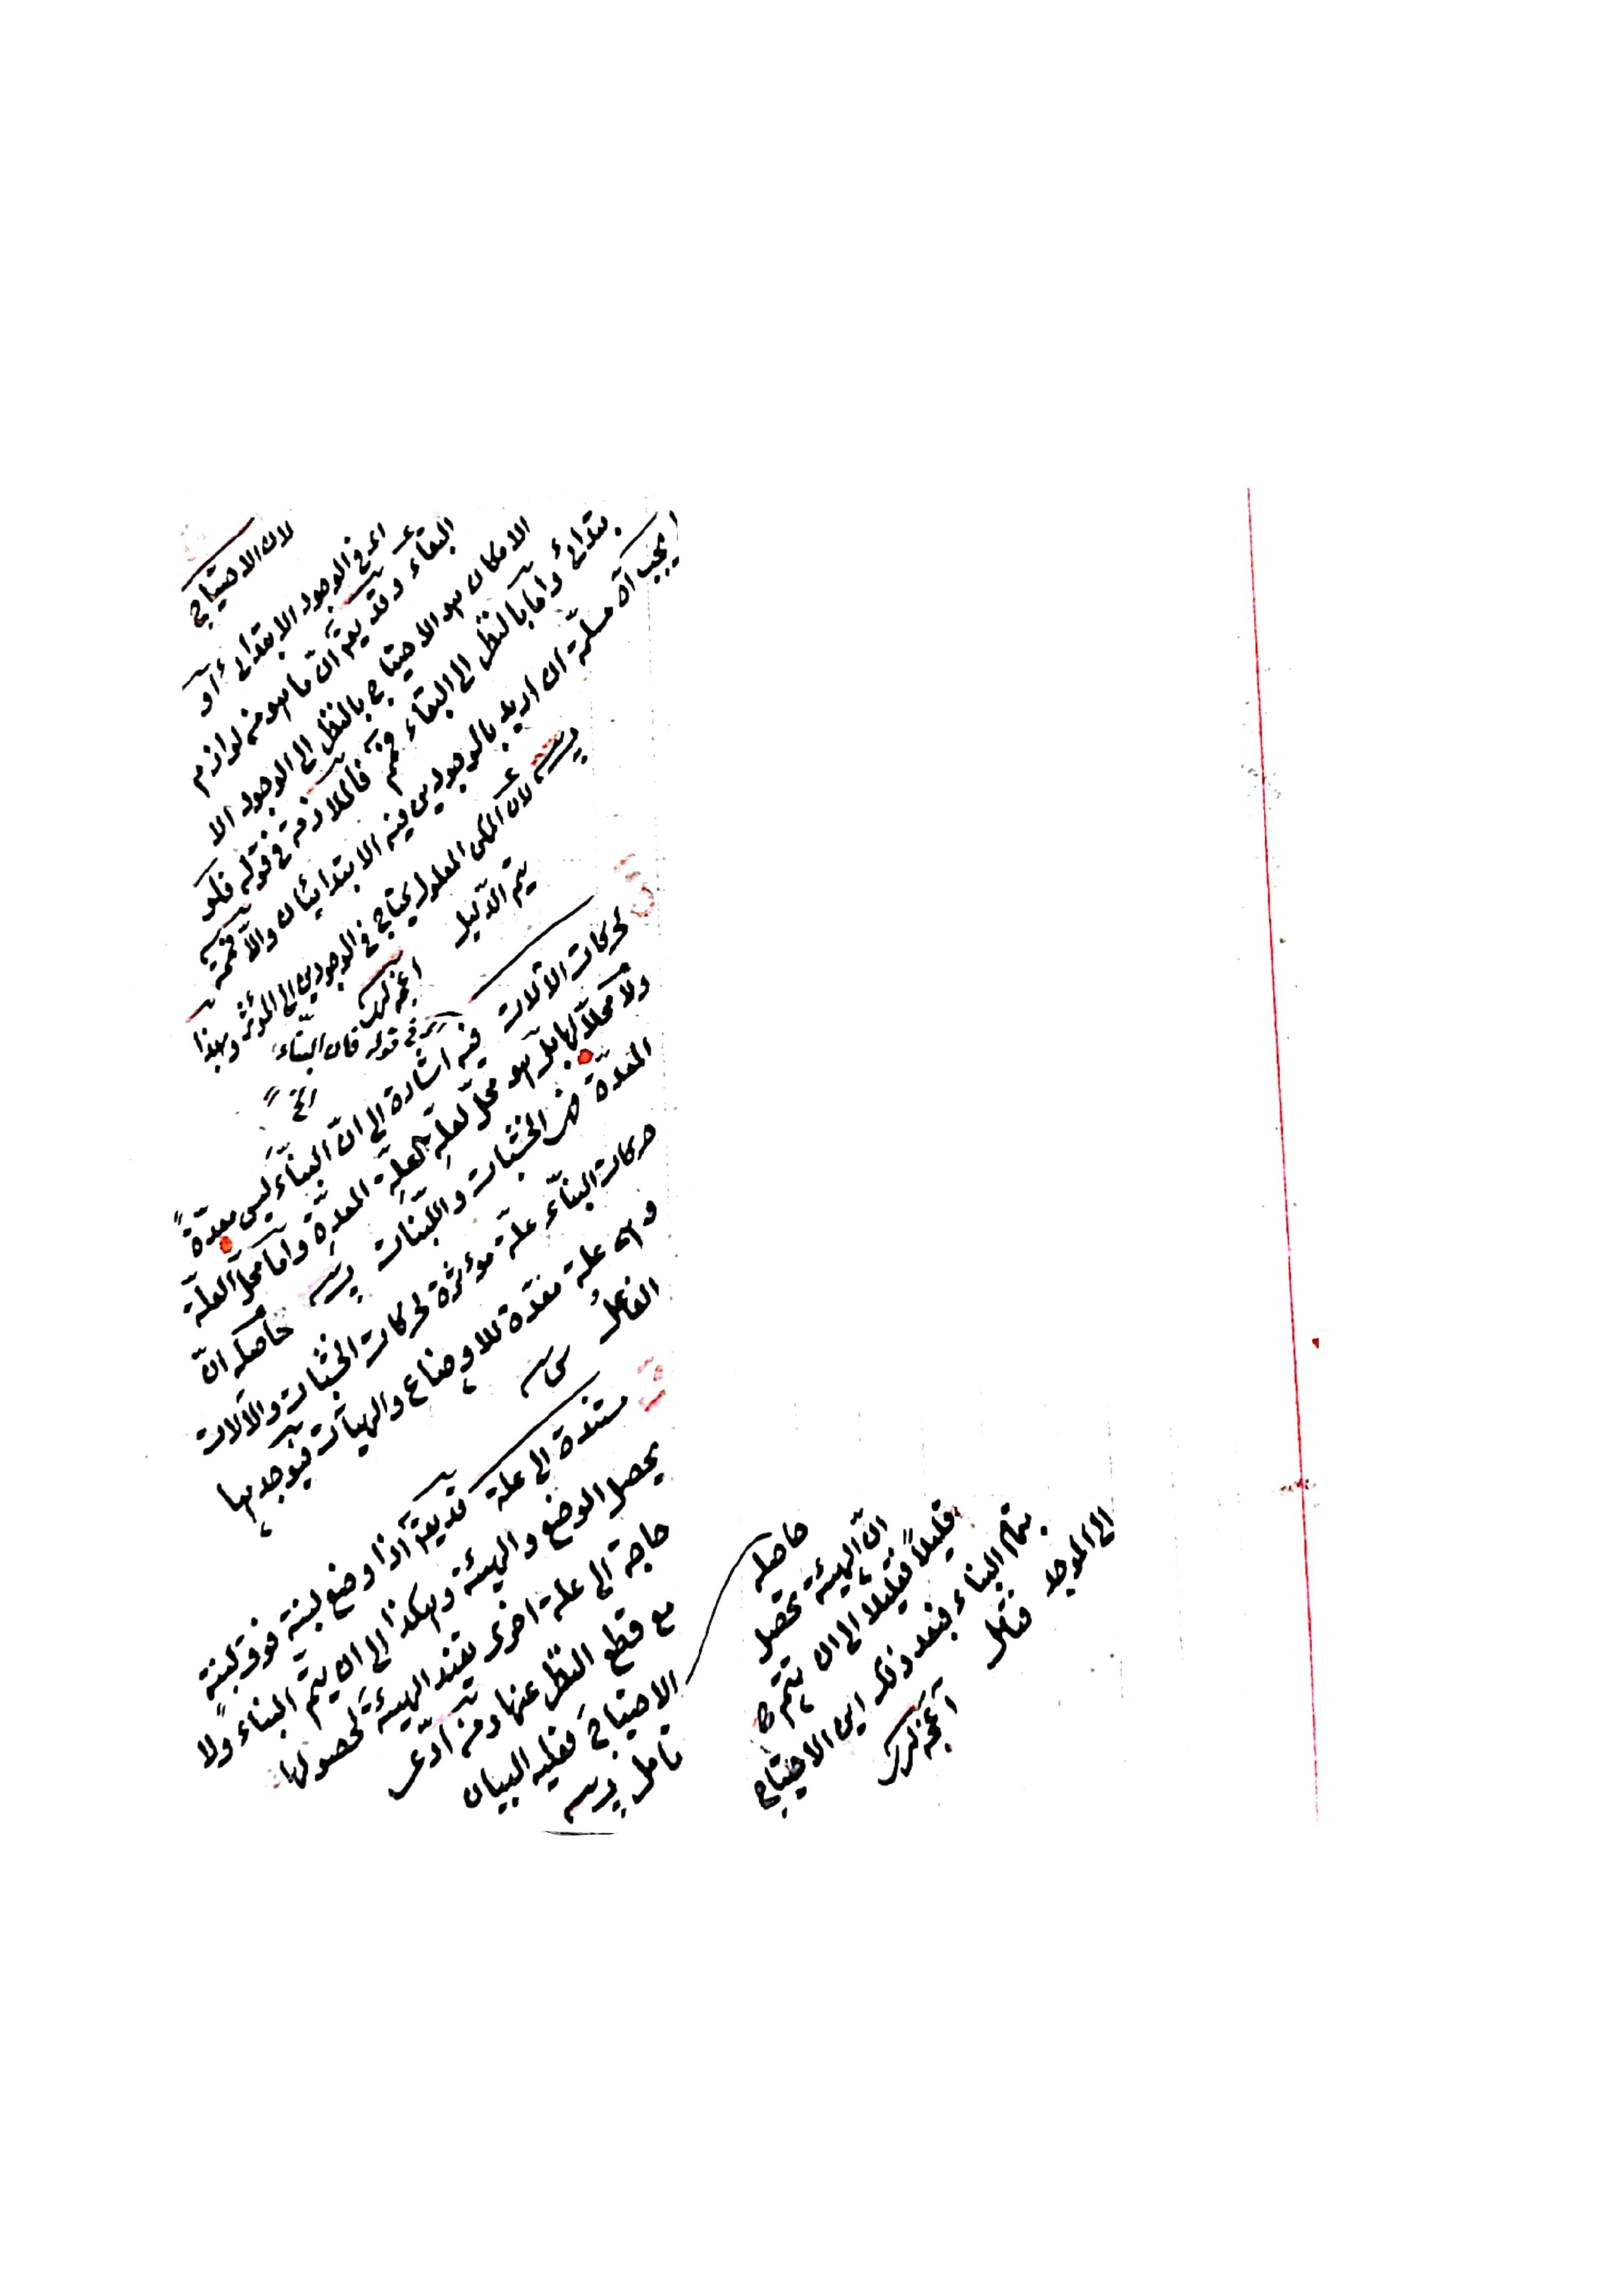 لان الاحتياج
اى فى الوجود الابتدائى او
البقاء وقد يقع ان ما هو من لوازم
الامكان هو الاحتياج بالنظر الى الوجود الا
بتدائى واما بالنظر الى البقاء فمم فالملازمة فى قوله فلو
يجب اه مسلمة ان اريد بالوجودين فيه الابتدائيان والا فمم
لان الممكن المعلول يحتاج فى الوجودين الى المؤثر وبهذا
يتم الدليل
فى قوله فان البناء
الخ
حركات الآلات فيه اشارة الى ان البناء ليس معدة
ولا محلا لها بل هو محل لعلة العلة المعدة واما محل العلة
المعدة فهى الخشبات واللبنات حاصله ان
حركات البناء علة مؤثرة لحركات الخشبات والآلات
وهى علة معدة للاوضاع والهيآت فتوجدها
الفاعل
مستندة الى علة قديمة اذا وضع لبنة فوق لبنة
يحصل الوضع والهيئة وهكذا الى ان يتم البناء ولا
حاجة الى علة اخرى تفيد الهيئة لحصولها
مع قطع النظر عنها ومن ادعى
الاحتياج فعليه البيان
تامل
حاصله
ان الهيئة تحصل
قليلا فقليلا الى ان يتم
بتمام البناء فبعد ذلك اين الاحتياج
الى الموجد فتامل